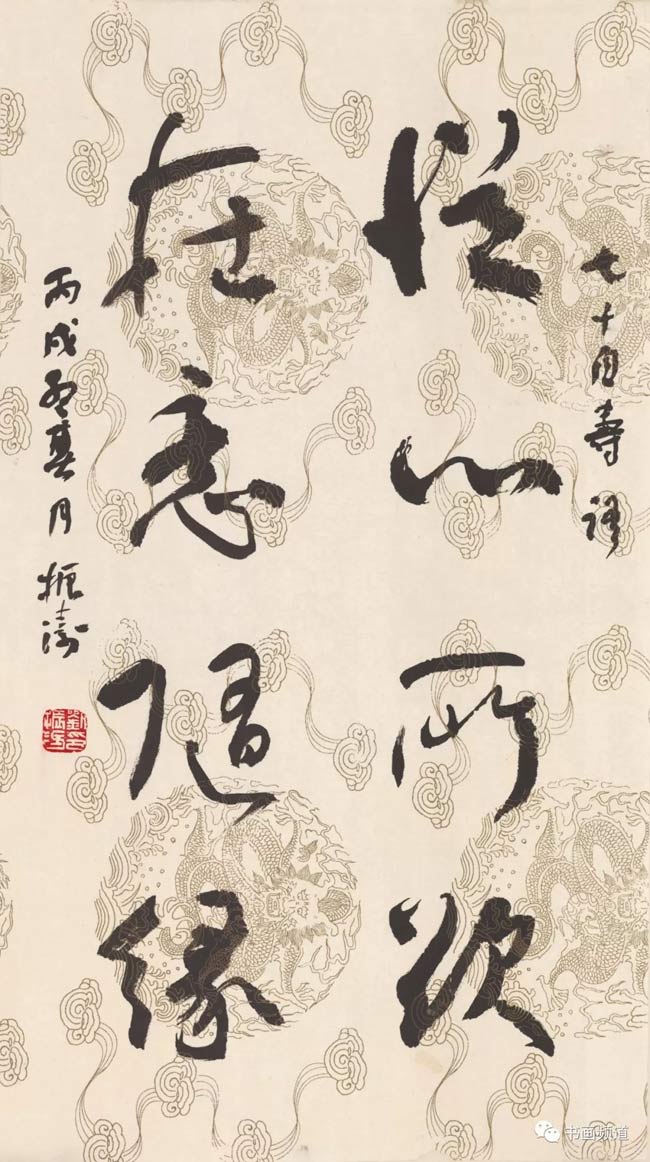 七十自壽語
從心所欲
在意隨緣
丙戌 月 振濤
劉印
振濤
书画频道